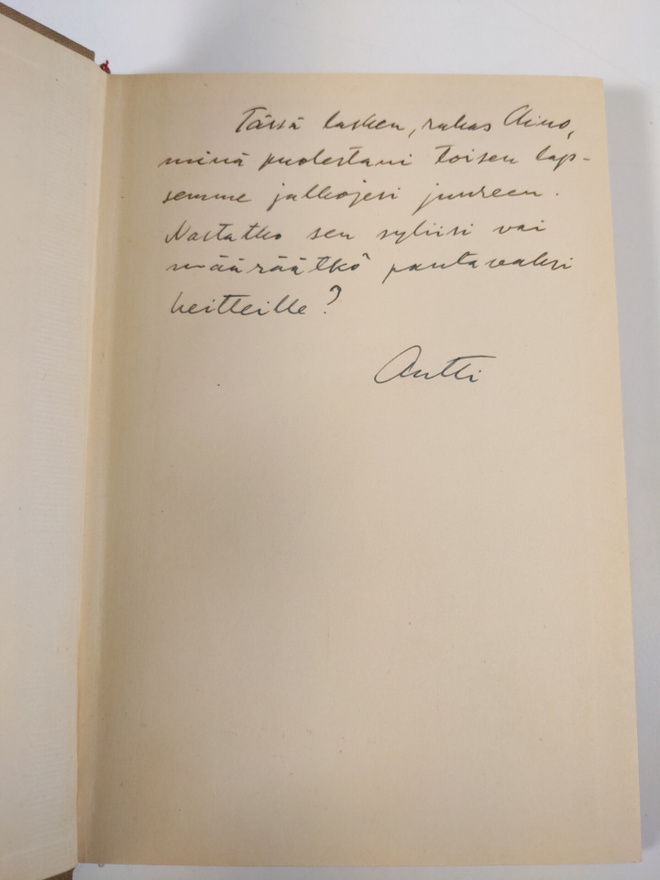 Tässä lasken, rakas Aino,
minä puolestani toisen lap-
semme jalkojesi juureen.
Nostatko sen syliisi vai
määräätkö pantavaksi
heitteille?
Antti